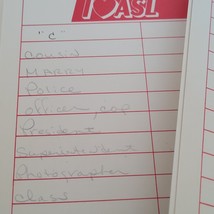 I ♥ ASL
"C"
cousin
MARRY
Police
officer, cop
President
Superintendent
Photographer
class